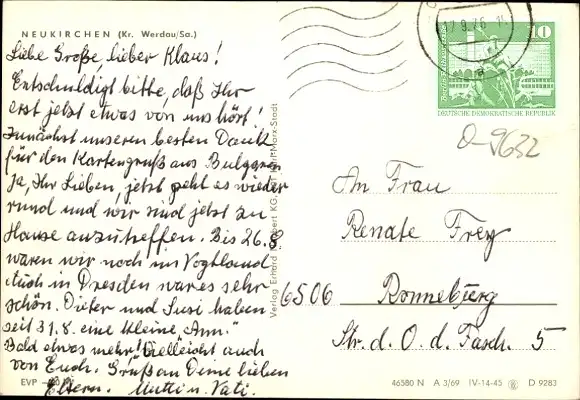 NEUKIRCHEN (Kr. Werdau/Sa.)
Liebe Große, lieber Klaus!
Entschuldigt bitte, daß Ihr
erst jetzt etwas von uns hört!
Zunächst unseren besten Dank
für den Kartengruß aus Bulgarien
Ja, Ihr Lieben, jetzt geht es wieder
rund und wir sind jetzt zu
Hause anzutreffen. Bis 26.8.
waren wir noch im Vogtland
Auch in Dresden war es sehr
schön. Dieter und Susi haben
seit 31.8. eine kleine "Ann."
Bald etwas mehr! Vielleicht auch
von Euch. Grüß an Deine lieben
Eltern. Mutti u. Vati.
EVP
Verlag Erhard KG, Karl-Marx-Stadt
17.9.76
10
DEUTSCHE DEMOKRATISCHE REPUBLIK
O-9632
An Frau
Renate Frey
6506 Ronneburg
Str. d. O. d. Fasch. 5
46580 N A 3/69 IV-14-45 D 9283